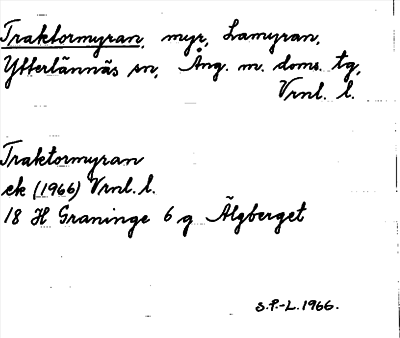 Traktormyran, myr, Lamyran,
Ytterlännäs sn, Ång. m. doms. tg,
Vrnl. l.
Traktormyran
ek (1966) Vrnl. l.
18 H Graninge 6 g Älgberget
S.P.-L. 1966.